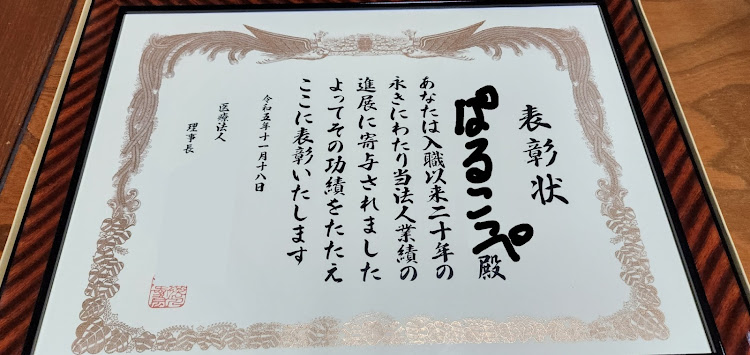 表彰状
ぱるこぷ殿
あなたは入職以来二十年の
永きにわたり当法人業績の
進展に寄与されました
よってその功績をたたえ
ここに表彰いたします
令和五年十一月十八日
医療法人
理事長